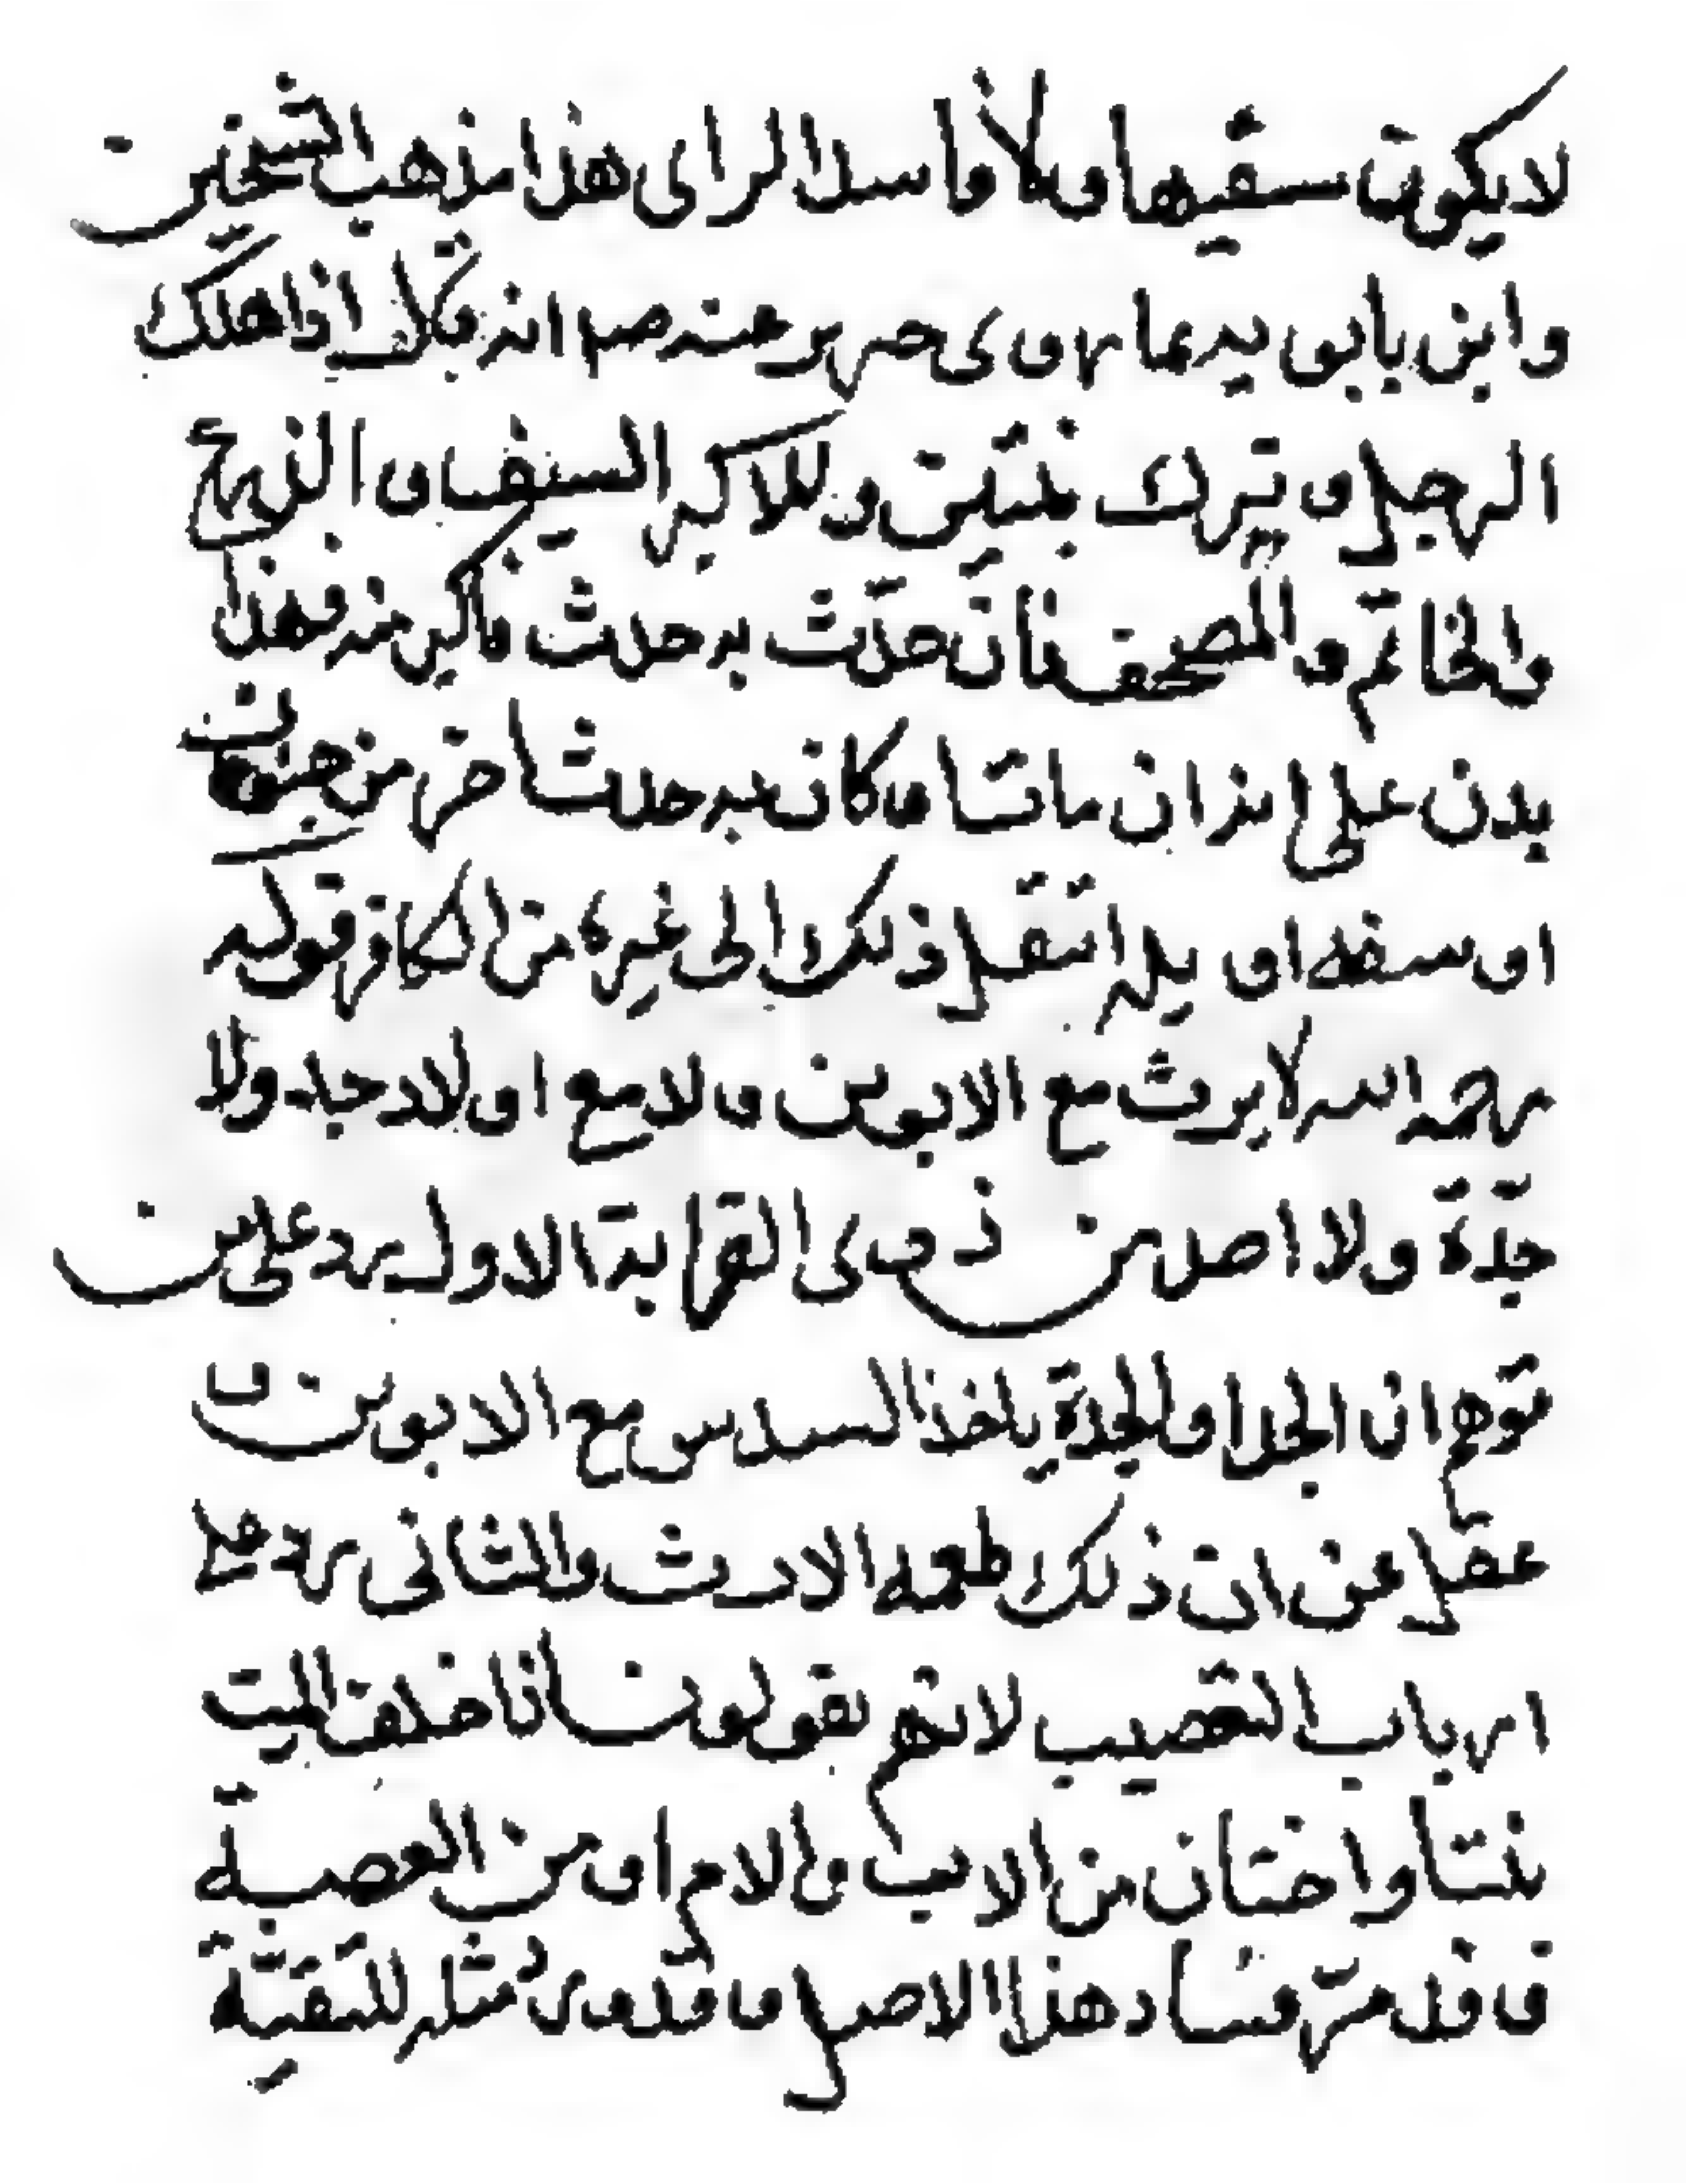 لا يكون سفيها ولا فاسد الراى هذا مذهب الشيخين
وابن بابويه بما روى حريز عنه ص انه قال اذا هلك
الرجل وترك بنتين وللاكبر السيف او الذرع
والخاتم والمصحف فان حدّث به حدث فاكبر منه فهذا
يدل على انه ان مات او كان به حدث اخر من جنون
او سفه او يله انتقل ذلك الى غيره من الكافر قوله
رحمه الله لا يرث مع الابوين ولا مع اولاد جد ولا
جدّة ولا احد من ذوى القرابة الاول رد على من
توهم ان الجد او الجدة ياخذ السدس مع الابوين و
غفل عن ان ذلك طعمه لا ارث والثانى رد على
ارباب التعصيب لانهم يقولون اذا خلف الميت
بنتا واختان من الاب والام او من العصبة
و قد مرّ فساد هذا الاصل و قد ورد مثله للتقيّة